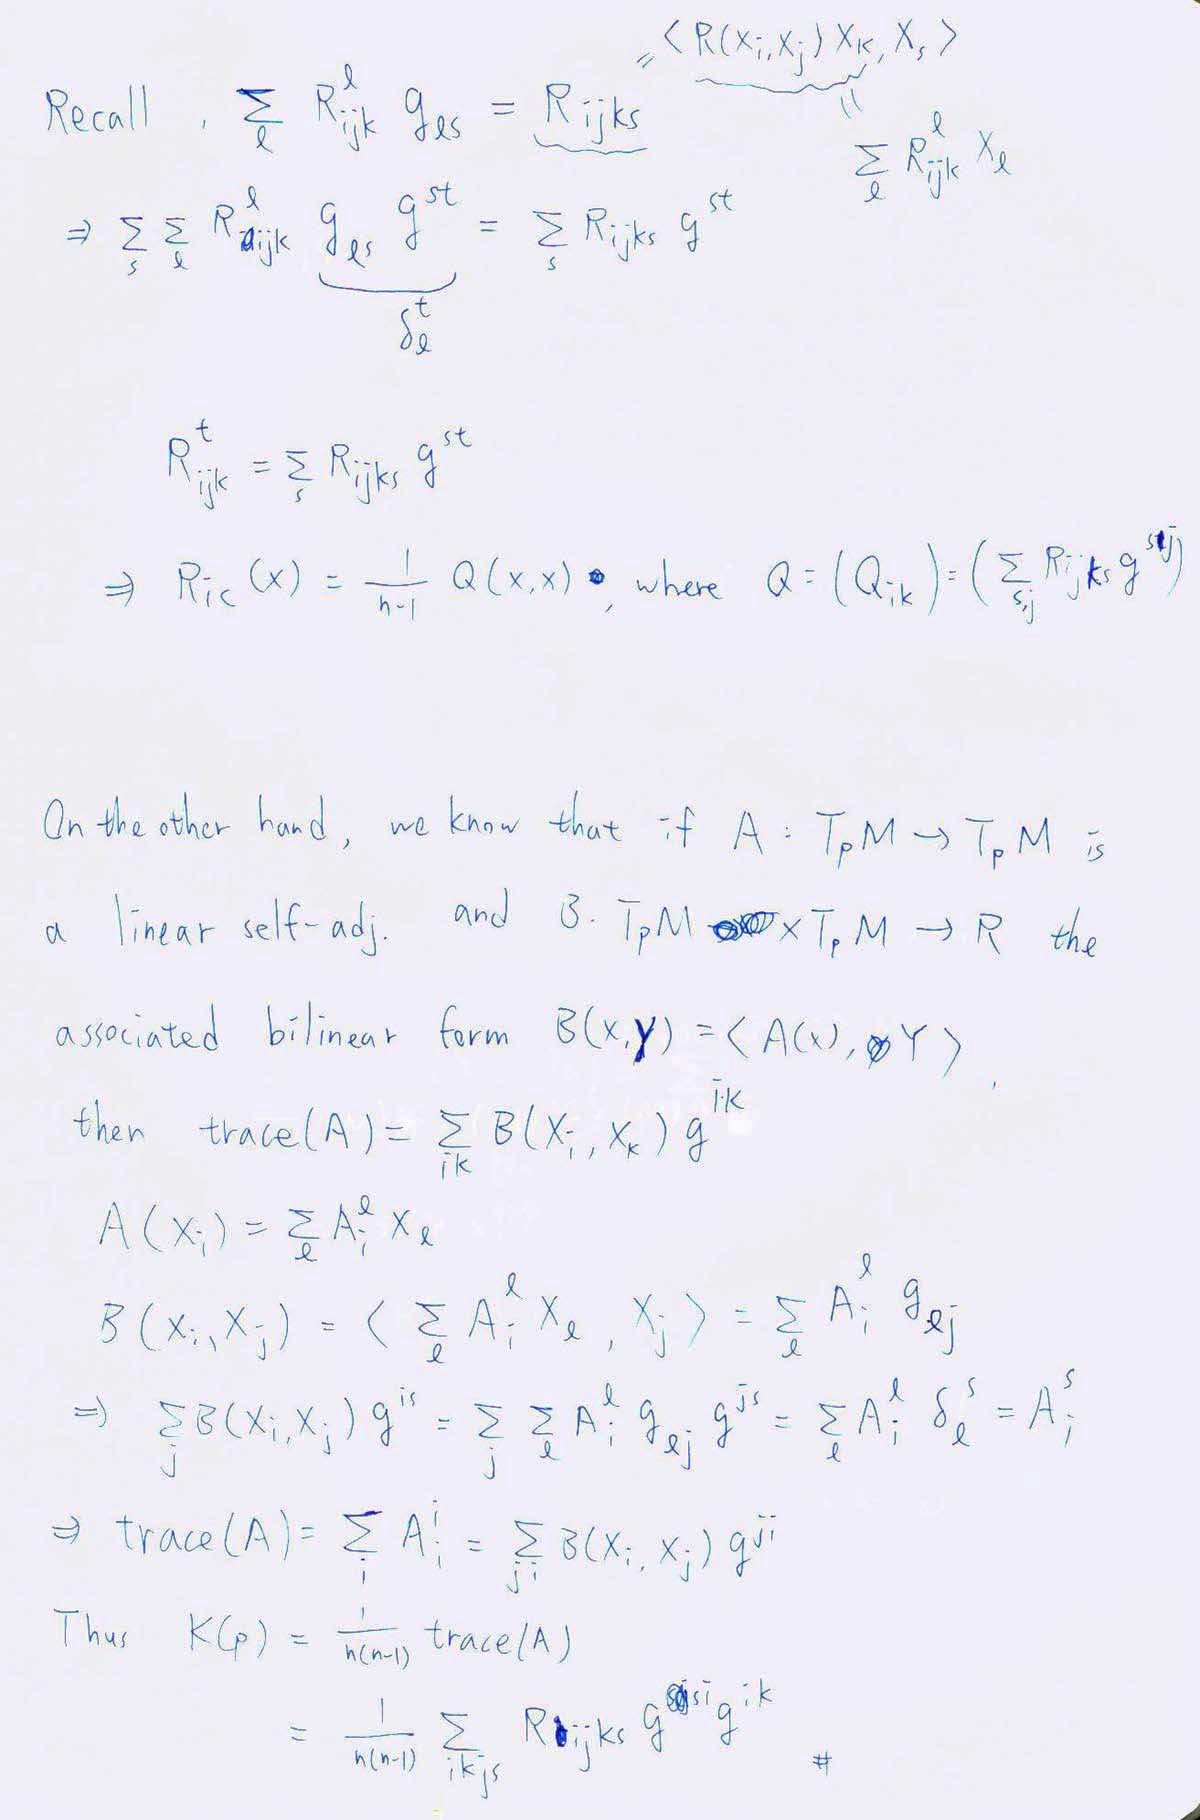 " ⟨R(Xi,Xj)Xk, Xs⟩
Recall , Σ_l R^l_ijk g_ls = R_ijks
"
Σ_l R^l_ijk X_l
⇒ Σ_s Σ_l R^l_ijk g_ls g^st = Σ_s R_ijks g^st
δ^t_l
R^t_ijk = Σ_s R_ijks g^st
⇒ Ric(x) = 1/(n-1) Q(x,x), where Q = (Q_ik) = (Σ_s,j R_ijks g^sj)
On the other hand, we know that if A : TpM → TpM is
a linear self-adj. and B. TpM × TpM → R the
associated bilinear form B(x,y) = ⟨A(x), Y⟩,
then trace(A) = Σ_ik B(Xi, Xk) g^ik
A(Xi) = Σ_l A^l_i X_l
B(Xi, Xj) = ⟨Σ_l A^l_i X_l, Xj⟩ = Σ_l A^l_i g_lj
⇒ Σ_j B(Xi, Xj) g^js = Σ_j Σ_l A^l_i g_lj g^js = Σ_l A^l_i δ^s_l = A^s_i
⇒ trace(A) = Σ_i A^i_i = Σ_ji B(Xi, Xj) g^ji
Thus K(p) = 1/n(n-1) trace(A)
= 1/n(n-1) Σ_ikjs R_ijks g^sj g^ik #